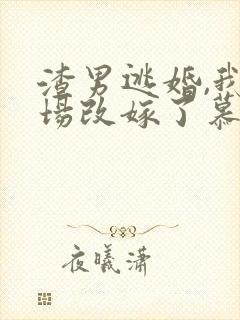 渣男逃婚,我
场改嫁了慕
夜曦潇